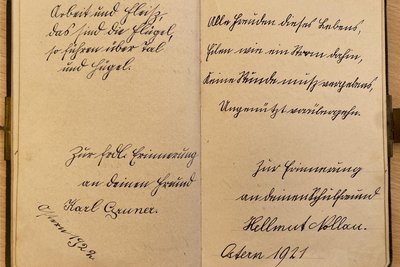 Arbeit und Fleiß,
das sind die Flügel,
so führen über Tal
und Hügel.
Zur frdl. Erinnerung
an deinen Freund
Karl Gruner.
Ostern 1922.
Alle Freuden dieses Lebens,
Eilen wie ein Strom dahin,
Keine Stunde muß vergebens,
Ungenützt vorübergehn.
Zur Erinnerung
an deinen Schulfreund
Hellmut Nollau.
Ostern 1921